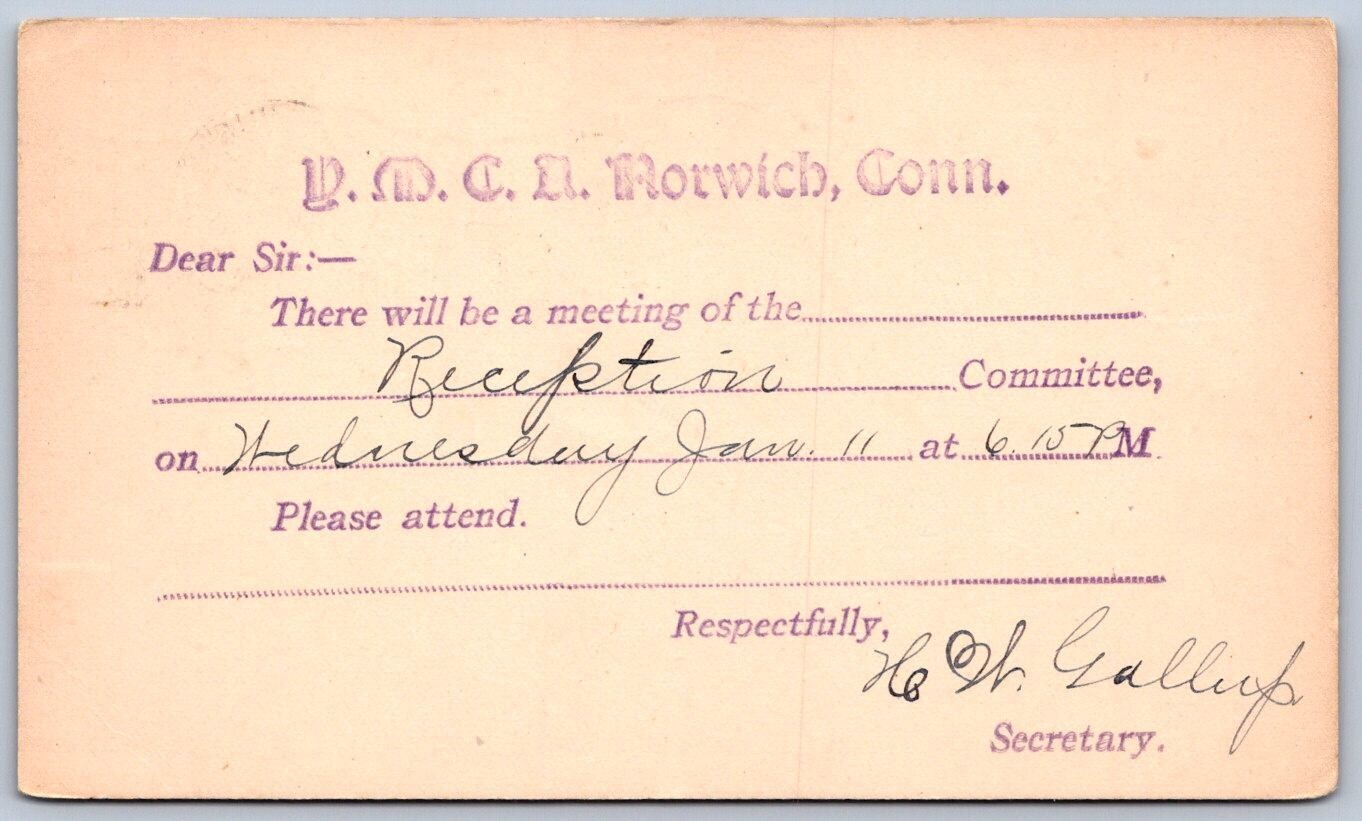 Y. M. C. A. Norwich, Conn.
Dear Sir:—
There will be a meeting of the
Reception Committee,
on Wednesday Jan. 11 at 6.15 P M
Please attend.
Respectfully,
H. W. Gallup
Secretary.